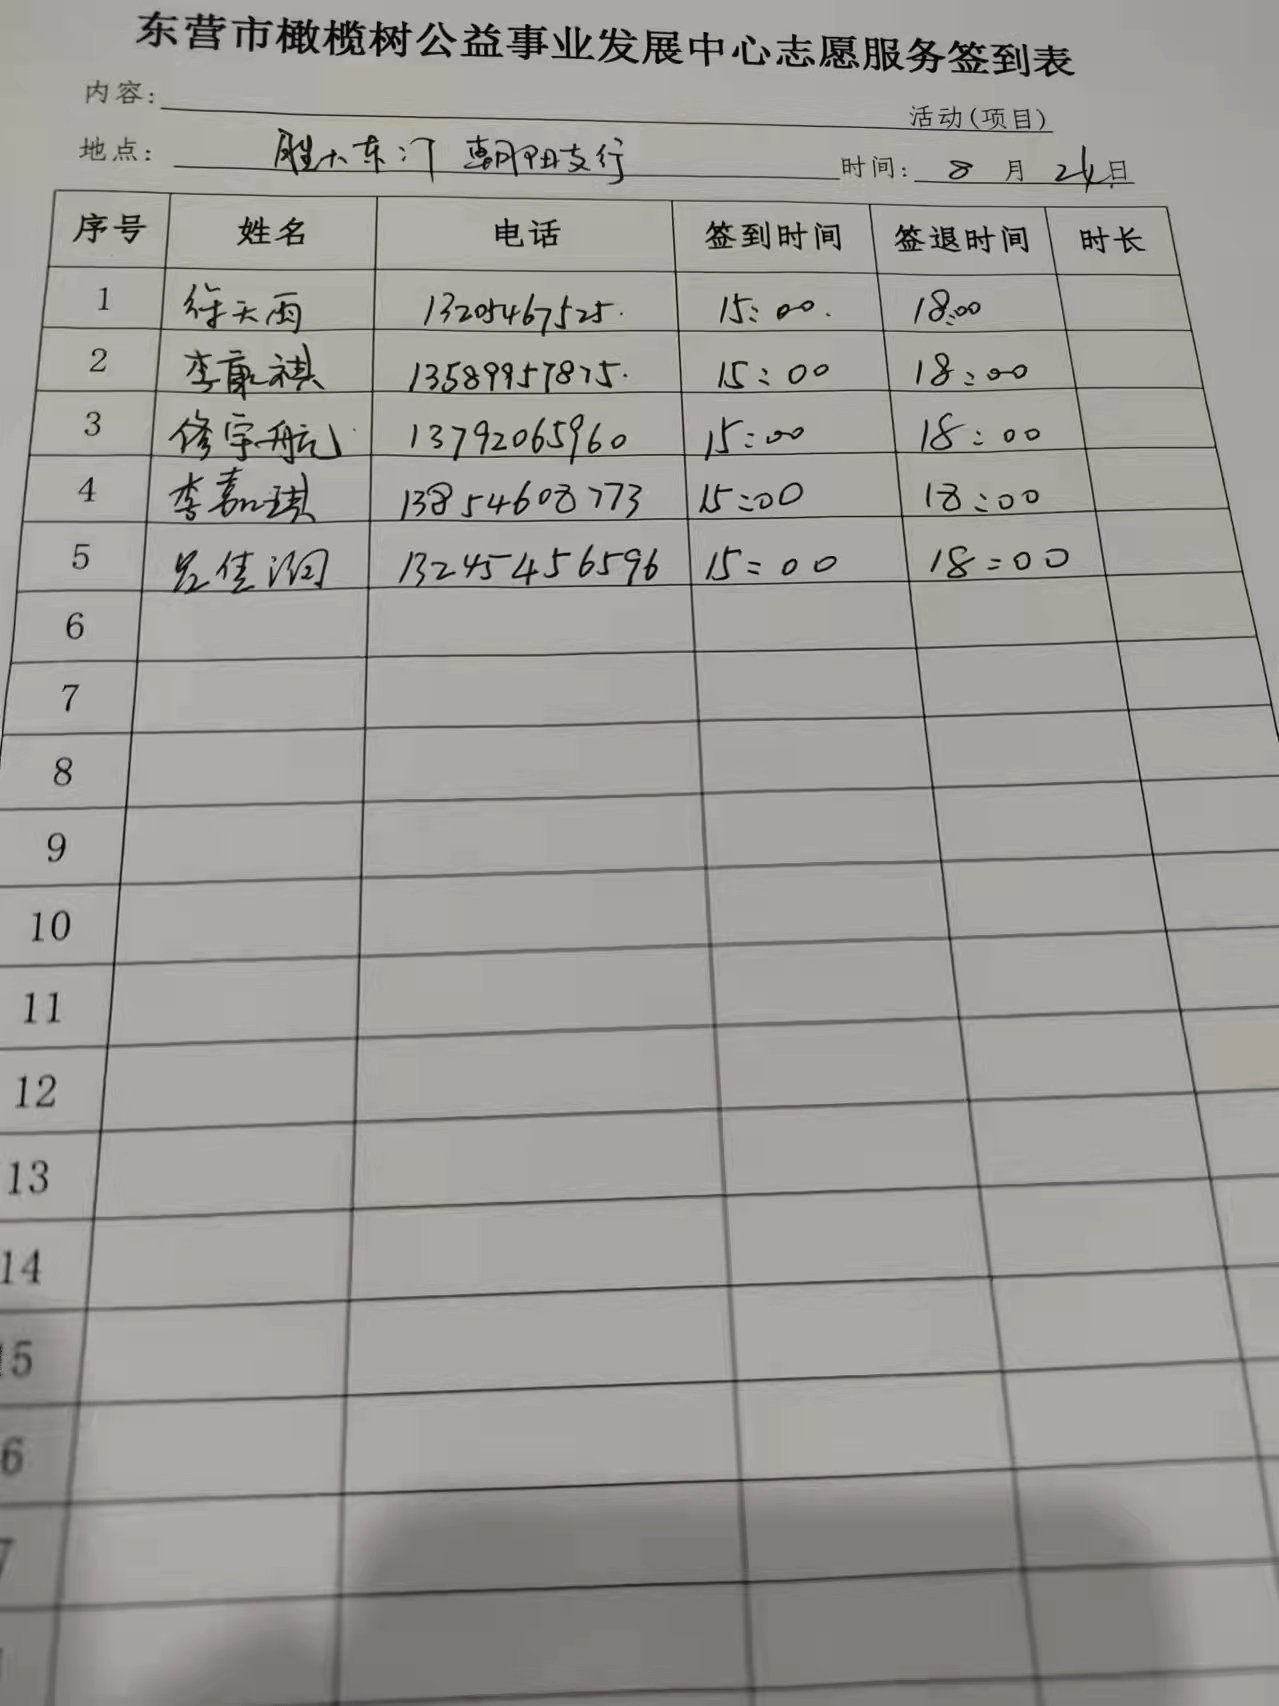 东营市橄榄树公益事业发展中心志愿服务签到表
内容: 活动(项目)
地点: 胜大东汀 朝阳支行 时间: 8 月 24 日
序号 姓名 电话 签到时间 签退时间 时长
1 徐天雨 13205467525. 15:00. 18:00
2 李康祺 13589957875. 15:00 18:00
3 修宇航 13792065960 15:00 18:00
4 李嘉琪 13854608773 15:00 18:00
5 吕佳润 13245456596 15:00 18:00
6
7
8
9
10
11
12
13
14
15
6
7